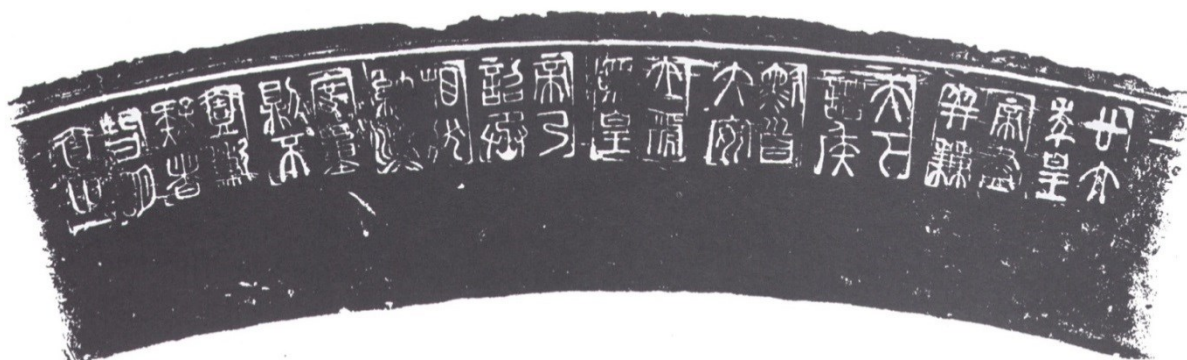 廿六
年皇
帝盡
并兼
天下
諸侯
黔首
大安
立號
為皇
帝乃
詔丞
相狀
綰法
度量
則不
壹歉
疑者
皆明
壹之